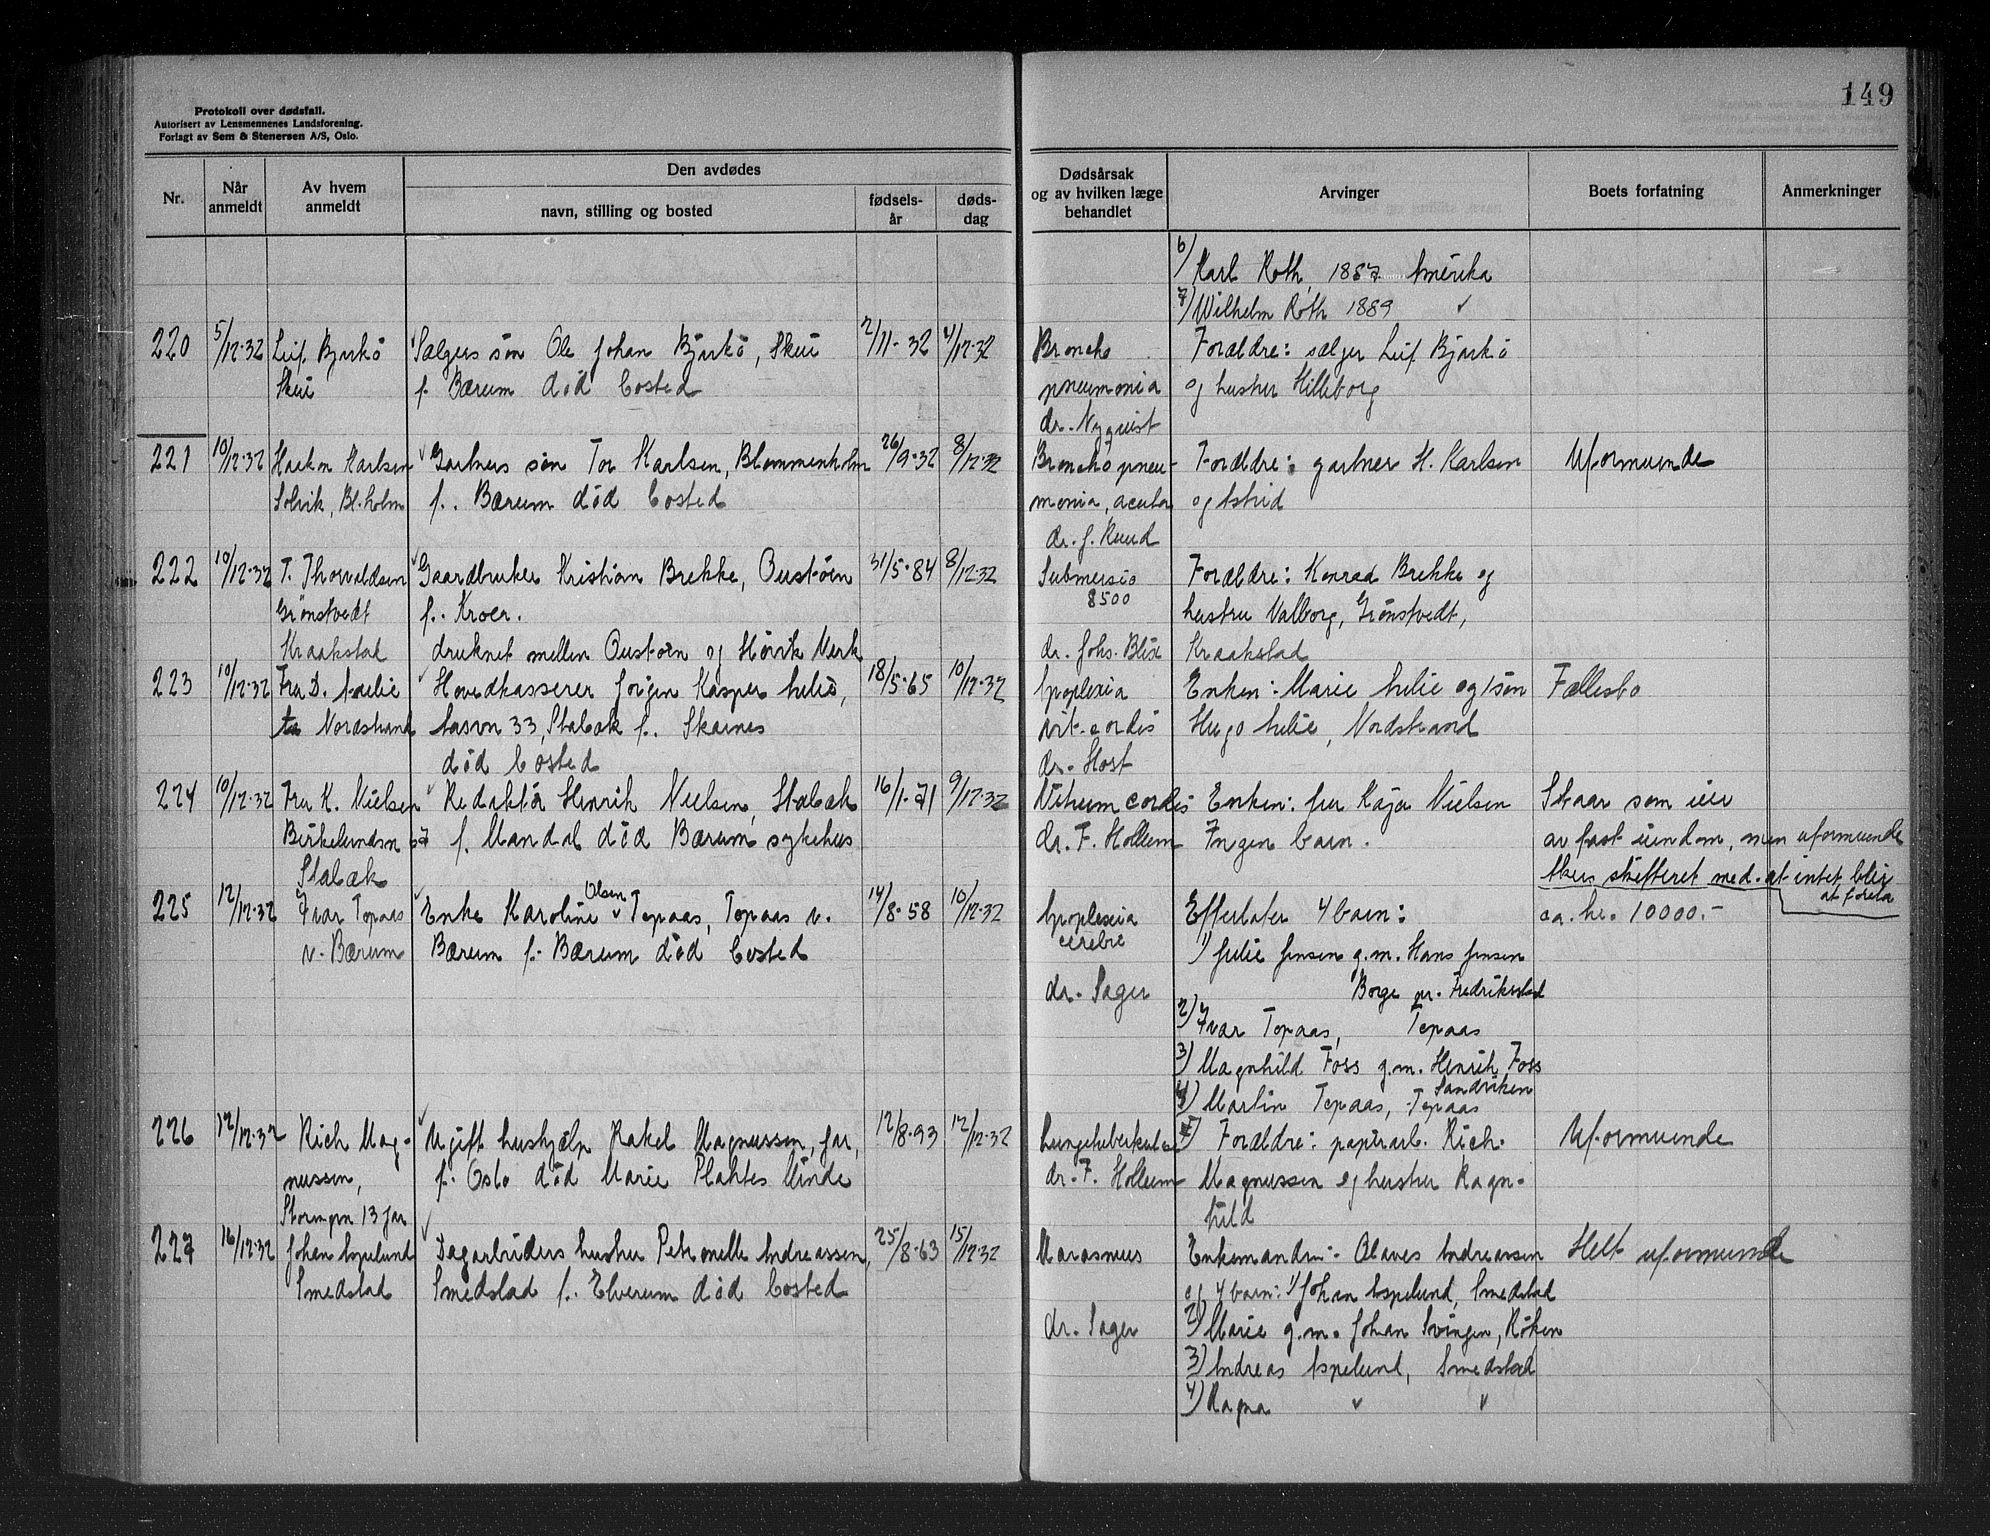 149
Protokoll over dødsfall.
Autorisert av Lensmennenes Landsforening.
Forlagt av Sem & Stenersen A/S, Oslo.
Nr.
Når anmeldt
Av hvem anmeldt
Den avdødes
navn, stilling og bosted
fødsels-år
døds-dag
Dødsårsak og av hvilken læge behandlet
Arvinger
Boets forfatning
Anmerkninger
6) Karl Roth, 1887 Amerika
7) Wilhelm Roth 1889 "
220 5/12-32 Leif Bjarkö Sælgers sön Ole Johan Bjarkö, Skui 2/11-32 4/12-32 Broncho Forældre: sælger Leif Bjarkö
Skui f. Bærum död bosted pneumonia og hustru Hilleborg
dr. Nyquist
221 10/12-32 Haakon Karlsen Gartners sön Tor Karlsen, Blommenholm 26/9-32 8/12-32 Bronchopneu- Forældre: gartner H. Karlsen Uformuende
Solvik, Bl.holm f. Bærum död bosted monia, acuta og Astrid
dr. J. Ruud
222 10/12-32 T. Thorvaldsen Gaardbruker Kristian Brekke, Oustöen 31/5-84 8/12-32 Submersio Forældre: Konrad Brekke og
Grönstvedt f. Kroer. 8500 hustru Valborg, Grönstvedt,
Kraakstad druknet mellem Oustöen og Hövik Verk dr. Johs. Blix Kraakstad
223 10/12-32 Fru D. Hovedkasserer Jörgen Kasper 18/5-65 10/12-32 Apoplexia Enken: Marie og 1 sön Fællesbo
Nordstrand 33, Stabæk f. Skarnes vit. cordis Hugo, Nordstrand
död bosted dr. Host
224 10/12-32 Fru K. Nielsen Redaktör Henrik Nielsen, Stabæk 16/1-71 9/12-32 Vitium cordis Enken: fru Kaja Nielsen Staar som eier
Birkelundsvn 67 f. Mandal död Bærum sykehus dr. F. Hollum Ingen barn. av fast eiendom, men uformuende
Stabæk skifteret med. at intet blir
at foreta
225 12/12-32 Ivar Topaas Enke Karoline Olsen Topaas, Topaas v. 14/8-58 10/12-32 Apoplexia Efterlater 4 barn: ca. kr. 10000.-
v. Bærum Bærum f. Bærum död bosted cerebri 1) Julie Jensen g.m. Hans Jensen
dr. Sager Borge pr. Fredrikstad
2) Ivar Topaas, Topaas
3) Magnhild Foss g.m. Henrik Foss
Sandviken
4) Martin Topaas, Topaas
226 12/12-32 Rich. Mag- Ugift hushjælp Rakel Magnussen, Jar, 12/8-93 12/12-32 Lungetuberkulose Forældre: papirarb. Rich. Uformuende
nussen, f. Oslo död Marie Plahtes Minde dr. F. Hollum Magnussen og hustru Ragn-
Storengvn 13 Jar hild
227 16/12-32 Johan Aspelund Dagarbeiders hustru Petronelle Andreassen, 25/8-63 15/12-32 Marasmus Enkemanden: Olaves Andreassen Helt uformuende
Smedstad Smedstad f. Elverum död bosted og 4 barn: 1) Johan Aspelund, Smedstad
dr. Sager 2) Marie g.m. Johan Svingen, Röken
3) Andreas Aspelund, Smedstad
4) Ragna " "